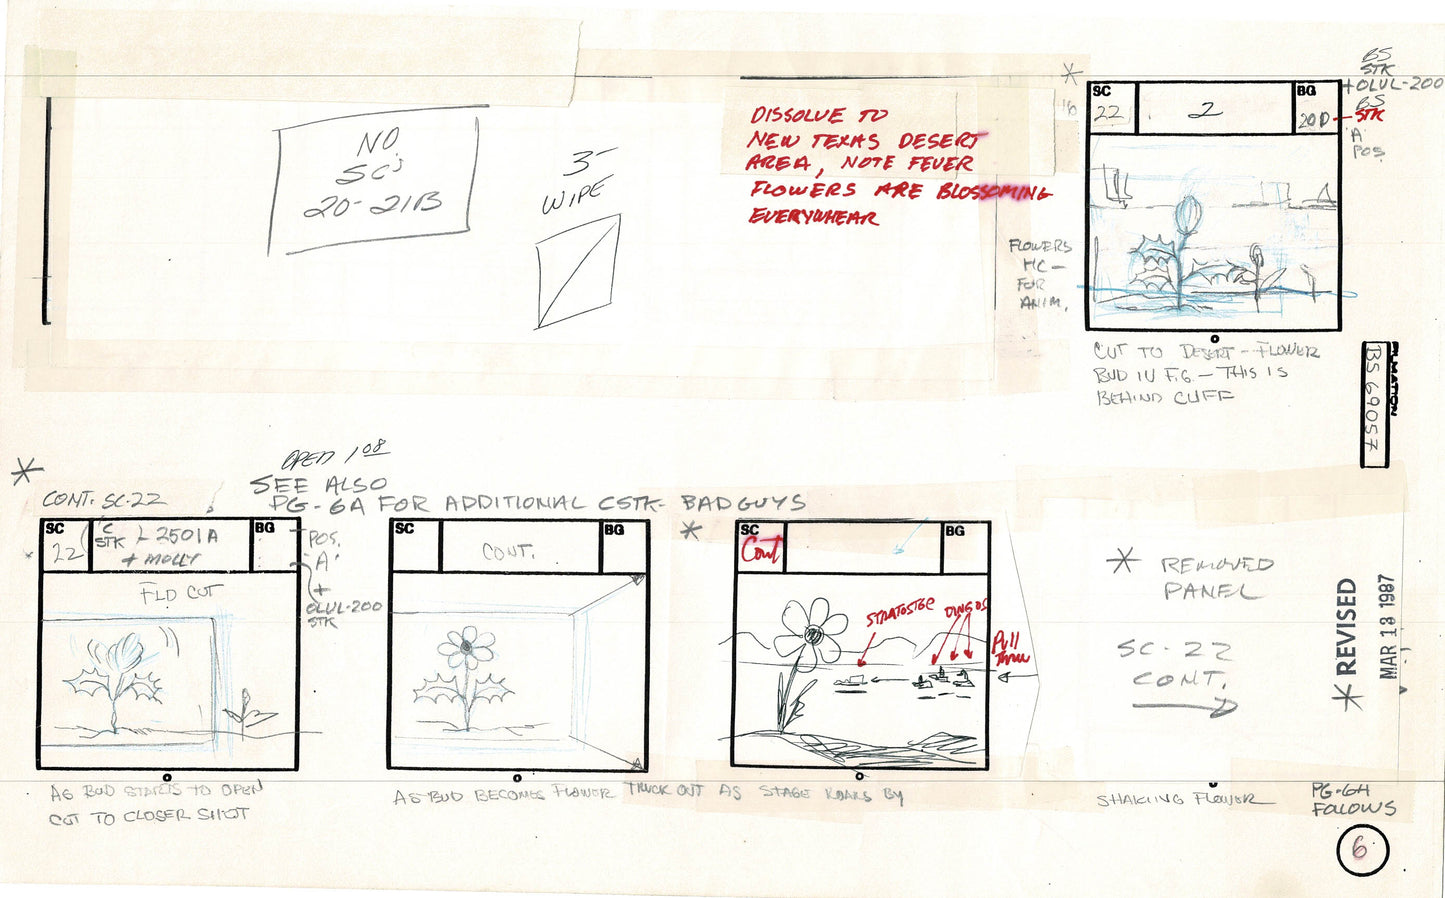 NO
SC'S
20-21B
3-
WIPE
DISSOLVE TO
NEW TEXAS DESERT
AREA, NOTE FEVER
FLOWERS ARE BLOSSOMING
EVERYWHEAR
FLOWERS
HC-
FOR
ANIM.
SC
22
2
BG
20D
BS
STK
+OLUL-200
BS
STK
'A'
POS
CUT TO DESERT - FLOWER
BUD IN F.G. - THIS IS
BEHIND CLIFF
FILMATION
BS 69057
OPEN 1 08
SEE ALSO
PG-6A FOR ADDITIONAL CSTK- BADGUYS
CONT. SC-22
SC
22
'C
STK
L-2501A
+ MOLLY
BG
POS.
'A'
+
OLUL-200
STK
FLD CUT
AS BUD STARTS TO OPEN
CUT TO CLOSER SHOT
SC
CONT.
BG
AS BUD BECOMES FLOWER TRUCK OUT AS STAGE ROARS BY
SC
Cont
BG
STRATOSTGE
DINGOS
Pull
Thru
REMOVED
PANEL
SC-22
CONT.
SHAKING FLOWER
REVISED
MAR 18 1987
PG-6A
FOLLOWS
6